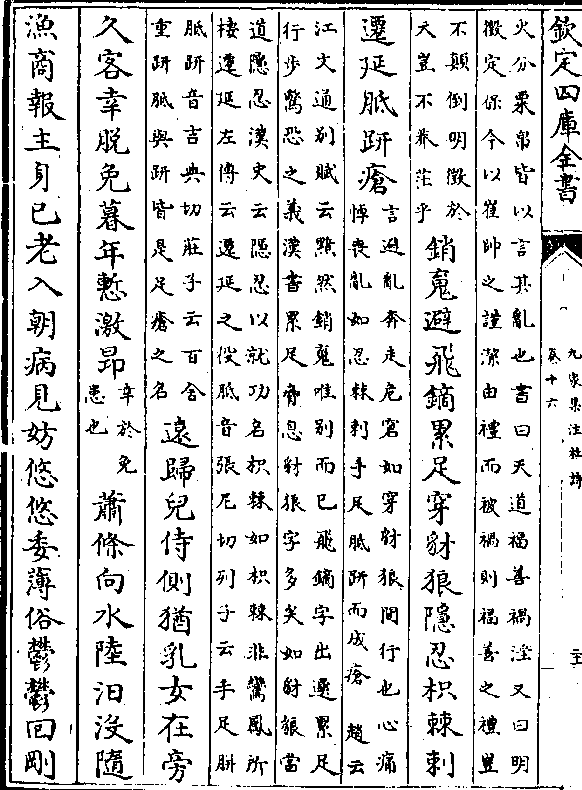 欽定四庫全書
九家集注杜詩
卷十六
火分粟帛皆以言其亂也書曰天道福善禍淫又曰明
徵定保今以崔帥之謹潔由禮而被禍則福善之禮豈
不顛倒明徵於
天豈不莽茫乎
銷䰟避飛鏑累足穿豺狼隱忍枳棘刺
遷延胝趼瘡
言避亂奔走危窘如穿豺狼間行也心痛
悼喪亂如忍棘刺手足胝趼而成瘡 趙云
江文通别賦云黯然銷䰟唯别而已飛鏑字出選累足
行步驚恐之義漢書累足脅息豺狼字多矣如豺狼當
道隱忍漢史云隱忍以就功名枳棘如枳棘非鸞鳳所
棲遷延左傳云遷延之役胝音張尼切列子云手足胼
胝趼音吉典切莊子云百舍
重趼胝與趼皆是足瘡之名
遠歸兒侍側猶乳女在旁
久客幸脫免暮年慙激昂
幸於免
患也
蕭條向水陸汨没隨
漁商報主身已老入朝病見妨悠悠委薄俗鬱鬱回剛